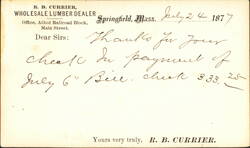 R. B. CURRIER,
WHOLESALE LUMBER DEALER
Office, Allied Railroad Block,
Main Street.
Springfield, Mass. July 24 1877
Dear Sirs:
Thanks for your
check in payment of
July 6" Bill. check 333.25
Yours very truly, R. B. CURRIER.